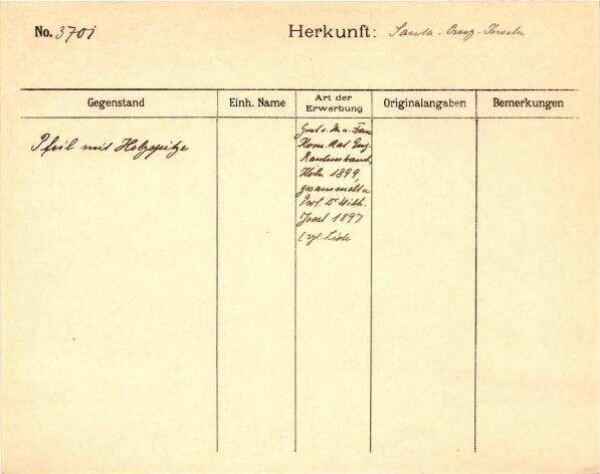 No. 3701
Herkunft: Santa-Cruz-Inseln
Gegenstand Einh. Name Art der Erwerbung Originalangaben Bemerkungen
Pfeil mit Holzspitze
v. H. u. Frau
Kom. Rat Eug.
Rautenstrauch,
Köln 1899,
gesammelt v.
Prof. Dr. Wilh.
Joest 1897
(vgl. Liste